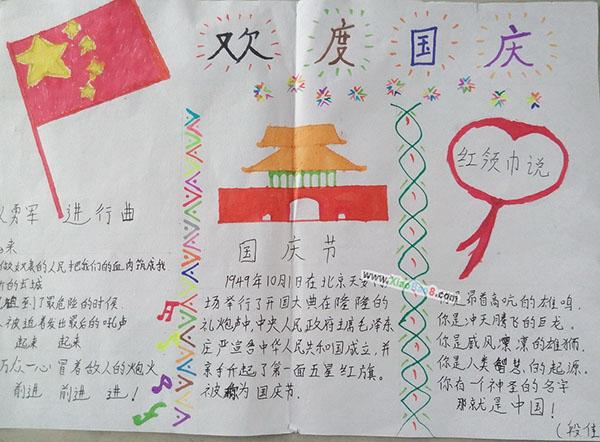 欢度国庆
勇军 进行曲
来
做奴隶的人民把我们的血肉筑成我
的长城
了最危险的时候
被迫着发出最后的吼声
起来 起来
万众一心 冒着敌人的炮火
前进 前进 进!
国庆节
1949年10月1日在北京天
场举行了开国大典在隆隆的
礼炮声中,中央人民政府主席毛泽东
庄严宣告中华人民共和国成立,并
亲手升起了第一面五星红旗。
被称为国庆节.
红领巾说
www.Xiaobao8.com
是昂首高吭的雄鸡,
你是冲天腾飞的巨龙,
你是威风凛凛的雄狮,
你是人类智慧的起源,
你有一个神圣的名字
那就是中国!
(段佳